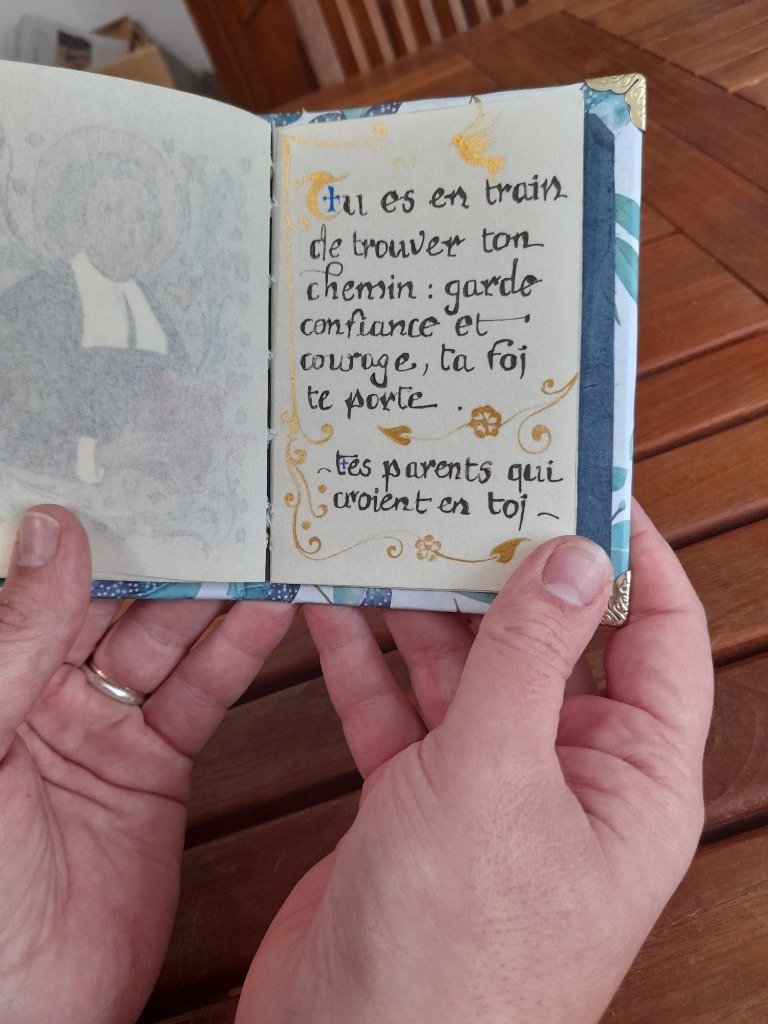 tu es en train
de trouver ton
chemin : garde
confiance et
courage, ta foj
te porte .
~ tes parents qui
croient en toj ~